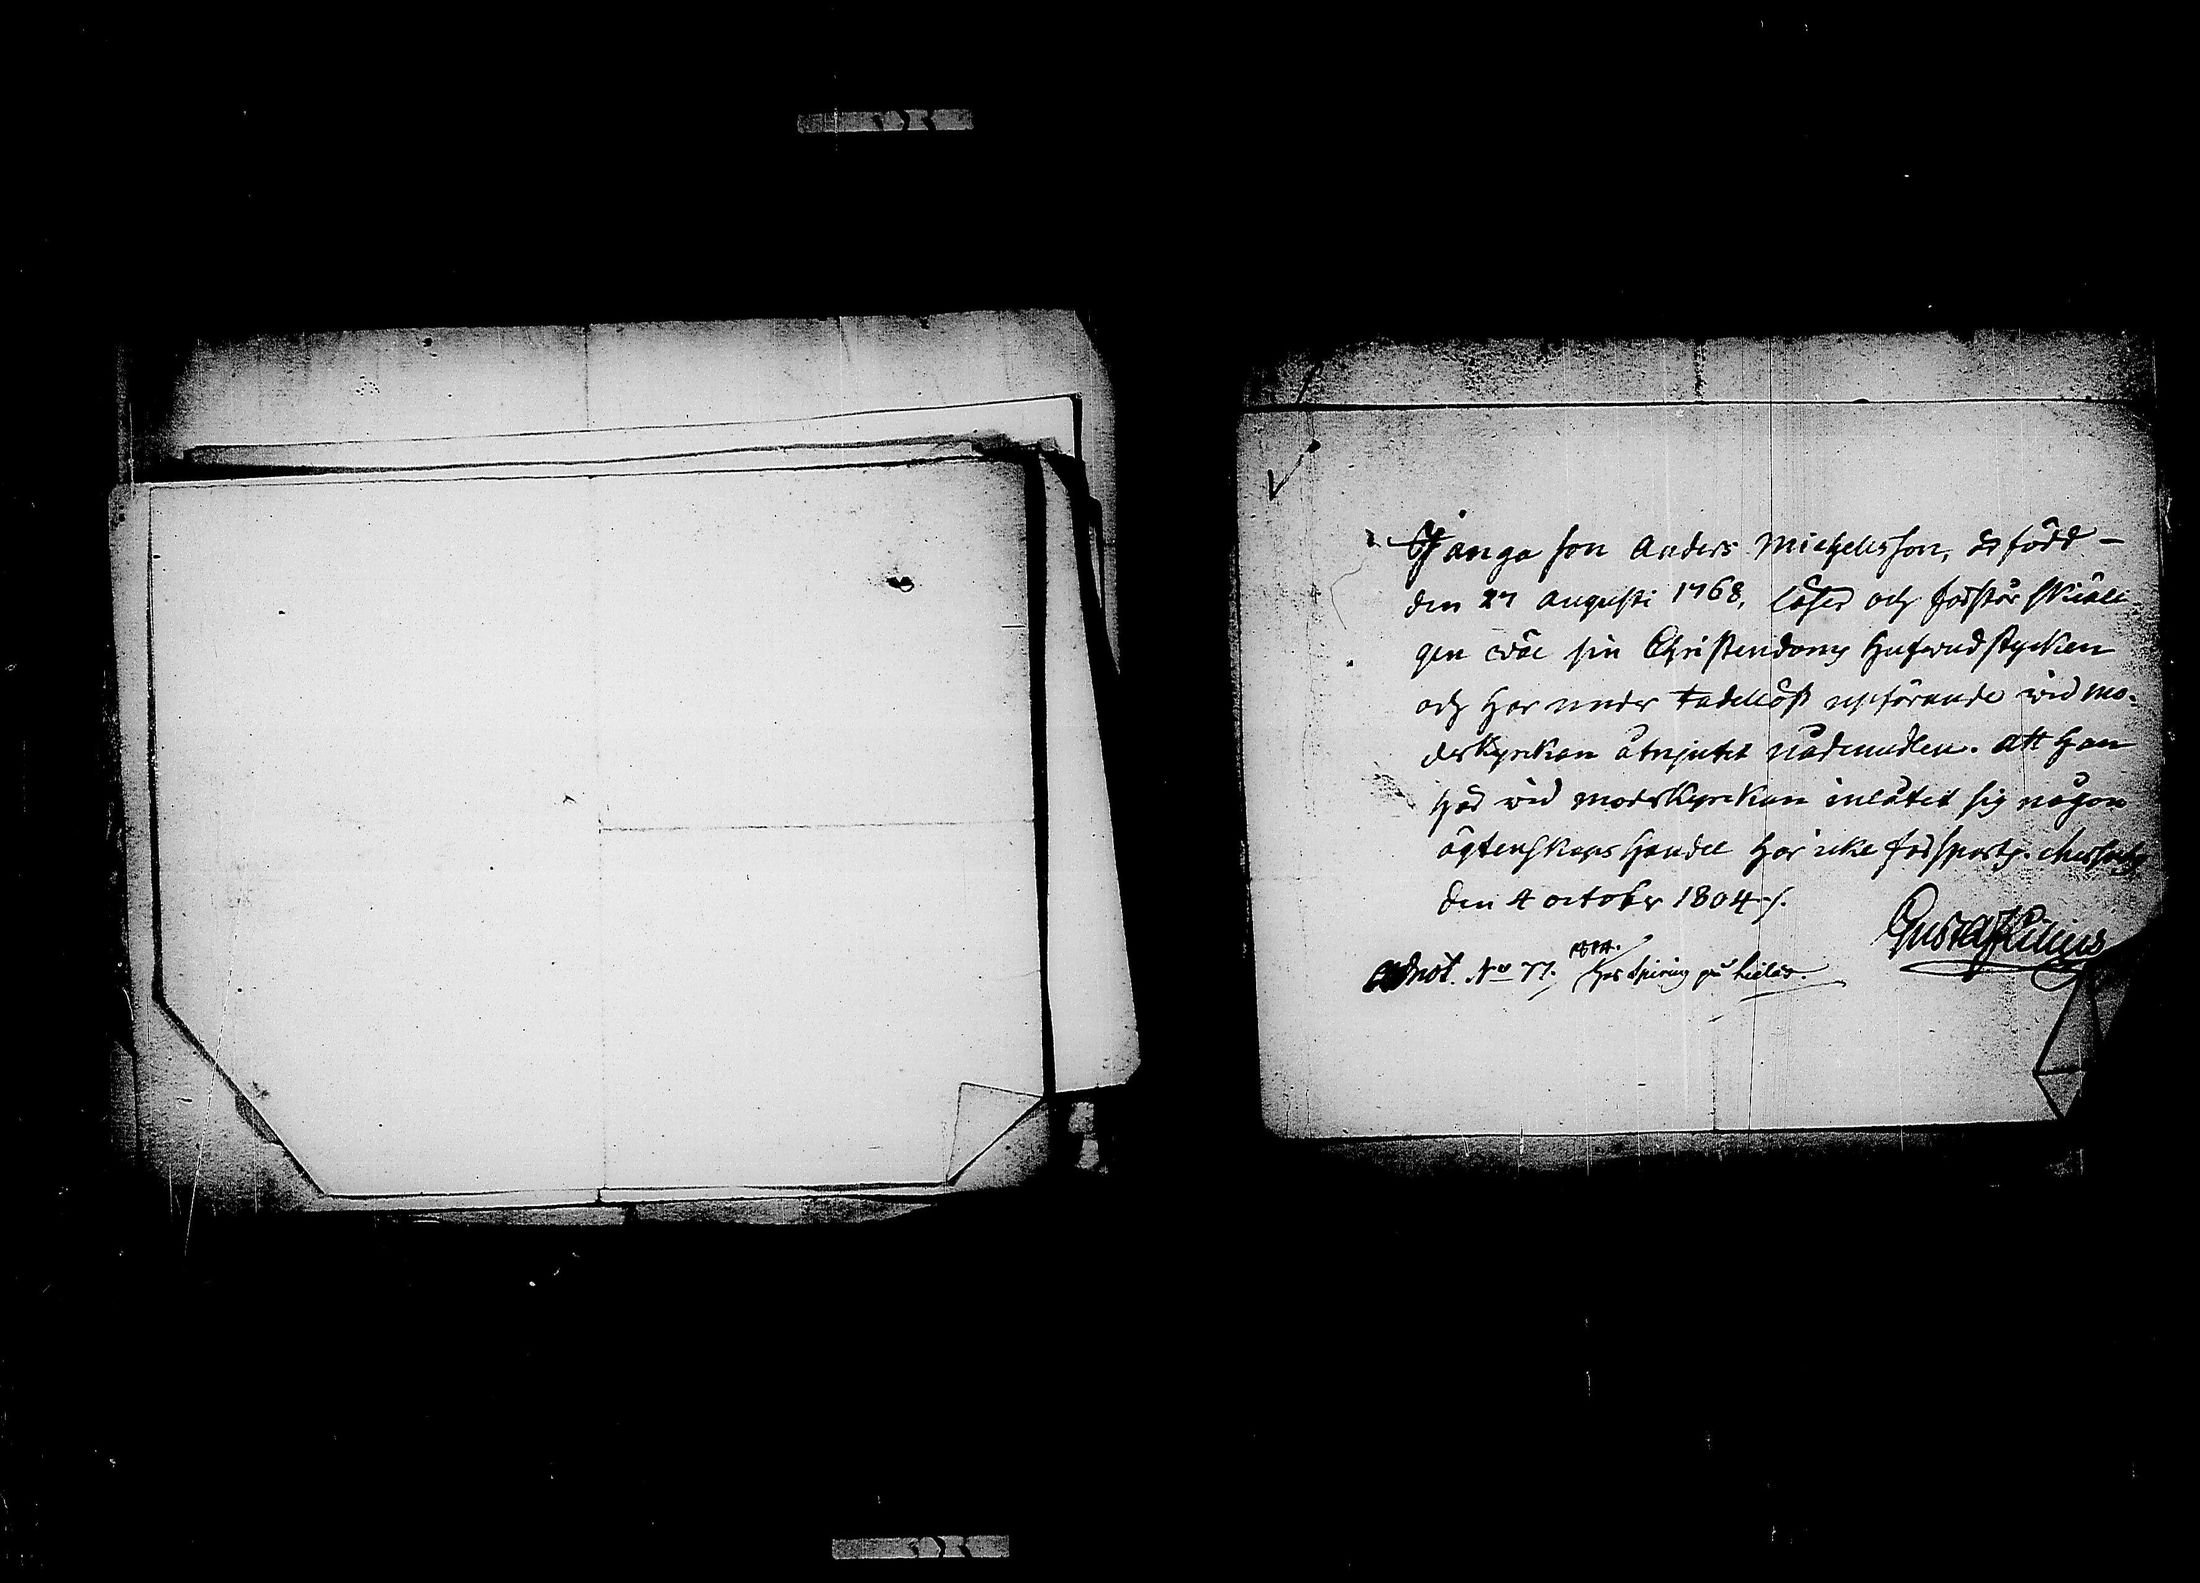 Anders Michelsson, är född -
den 27 Augusti 1768, läser och förstår skiäli-
gen wäl sin Christendoms hufwudstycken
och har under tadellöst upförande wid mo-
derkyrkan åtnjutit nådemedlen. Att han
här wid moderkyrkan inlåtit sig någon
ägtenskaps handel har icke försports.
den 4 October 1804.
Gustaf
Annot. No 77.